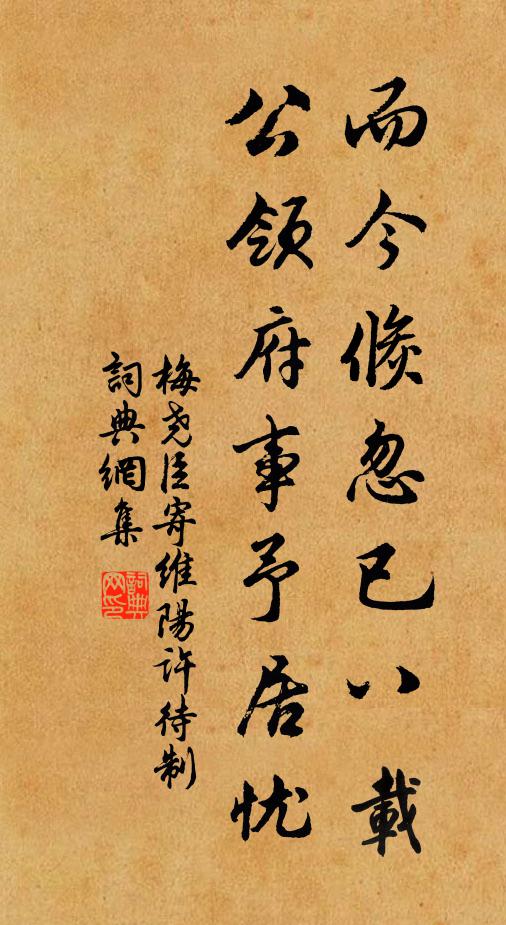 而今倐忽已八載
公領府事予居忧
梅尧臣寄維陽許待制
詞典網集
詞典网印